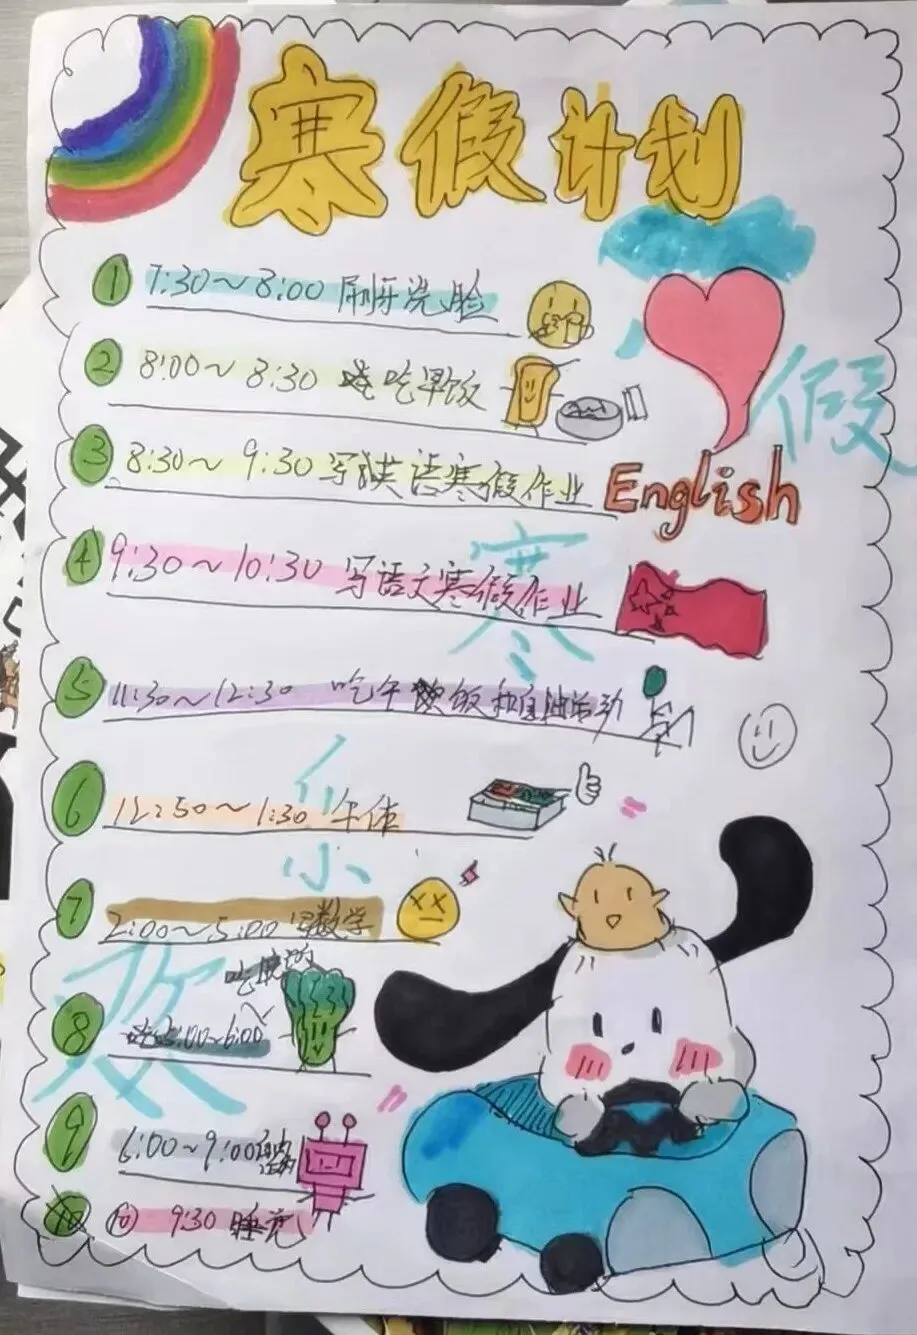 寒假计划
① 7:30~8:00 刷牙洗脸
② 8:00~8:30 吃早饭
③ 8:30~9:30 写英语寒假作业
English
④ 9:30~10:30 写语文寒假作业
⑤ 11:30~12:30 吃午饭和自由活动
⑥ 12:50~1:30 午休
⑦ 2:00~5:00 写数学
吃晚饭
⑧ 5:00~6:00
⑨ 6:00~9:00
⑩ 9:30 睡觉
假
寒
小
欢